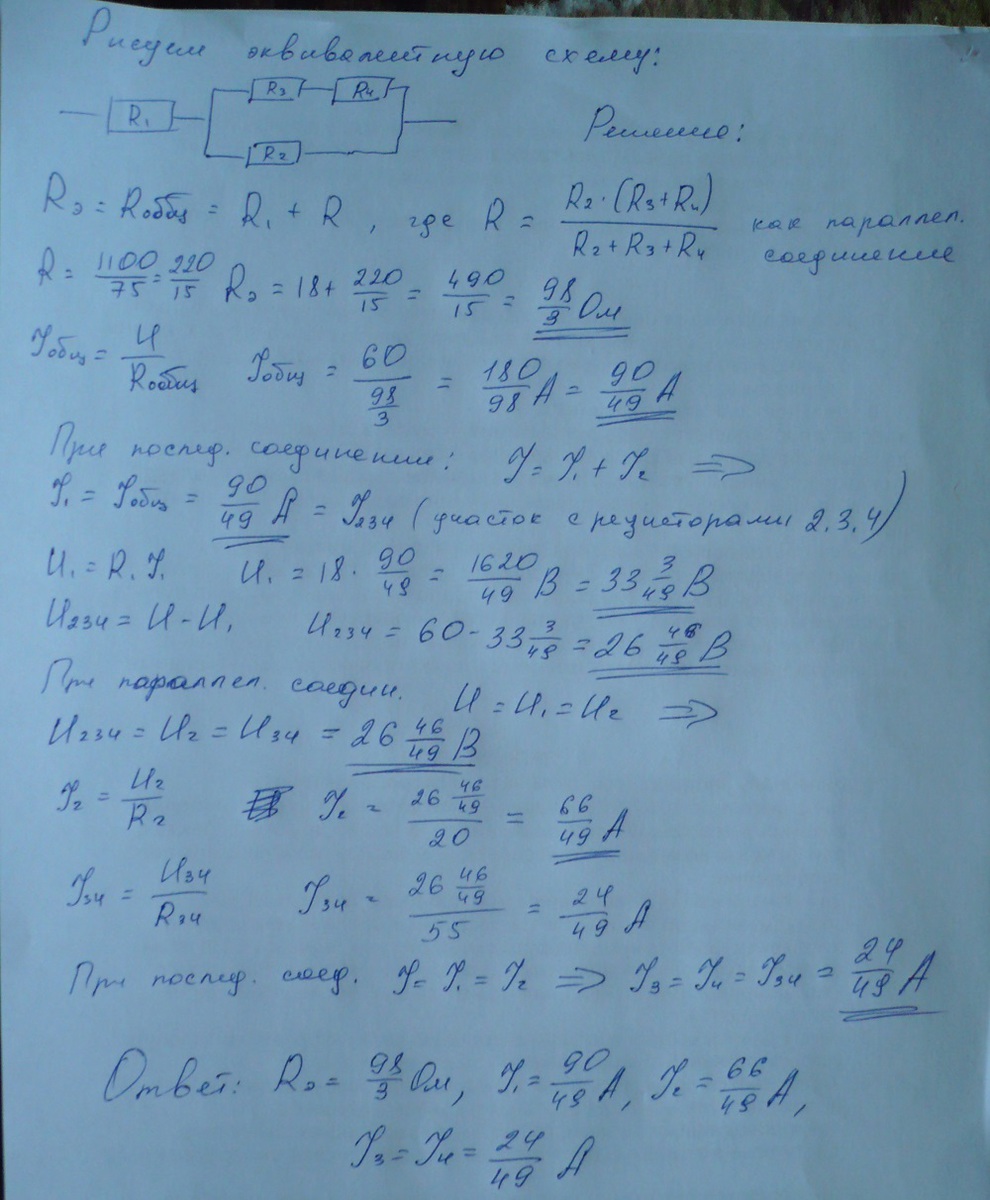 Рисуем эквивалентную схему:
R₁ R₃ R₄ R₂
Решение:
Rэ = Rобщ = R₁ + R , где R = R₂·(R₃+R₄)/(R₂+R₃+R₄) как параллел. соединение
R = 1100/75 = 220/15 Rэ = 18 + 220/15 = 490/15 = 98/3 Ом
Iобщ = U/Rобщ Iобщ = 60/(98/3) = 180/98 A = 90/49 A
При послед. соединении: I = I₁ + I₂ ⇒
I₁ = Iобщ = 90/49 A = I₂₃₄ (участок с резисторами 2,3,4)
U₁ = R₁ I₁ U₁ = 18 · 90/49 = 1620/49 В = 33 3/49 В
U₂₃₄ = U - U₁ U₂₃₄ = 60 - 33 3/49 = 26 46/49 В
При параллел. соедин. U = U₁ = U₂ ⇒
U₂₃₄ = U₂ = U₃₄ = 26 46/49 В
I₂ = U₂/R₂ I₂ = (26 46/49)/20 = 66/49 A
I₃₄ = U₃₄/R₃₄ I₃₄ = (26 46/49)/55 = 24/49 A
При послед. соед. I = I₁ = I₂ ⇒ I₃ = I₄ = I₃₄ = 24/49 A
Ответ: Rэ = 98/3 Ом, I₁ = 90/49 A, I₂ = 66/49 A,
I₃ = I₄ = 24/49 A